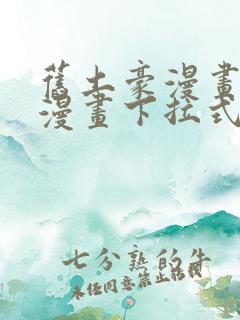 舊土豪漫畫
漫畫下拉式
七分熟的牛
未任同意禁止轉載